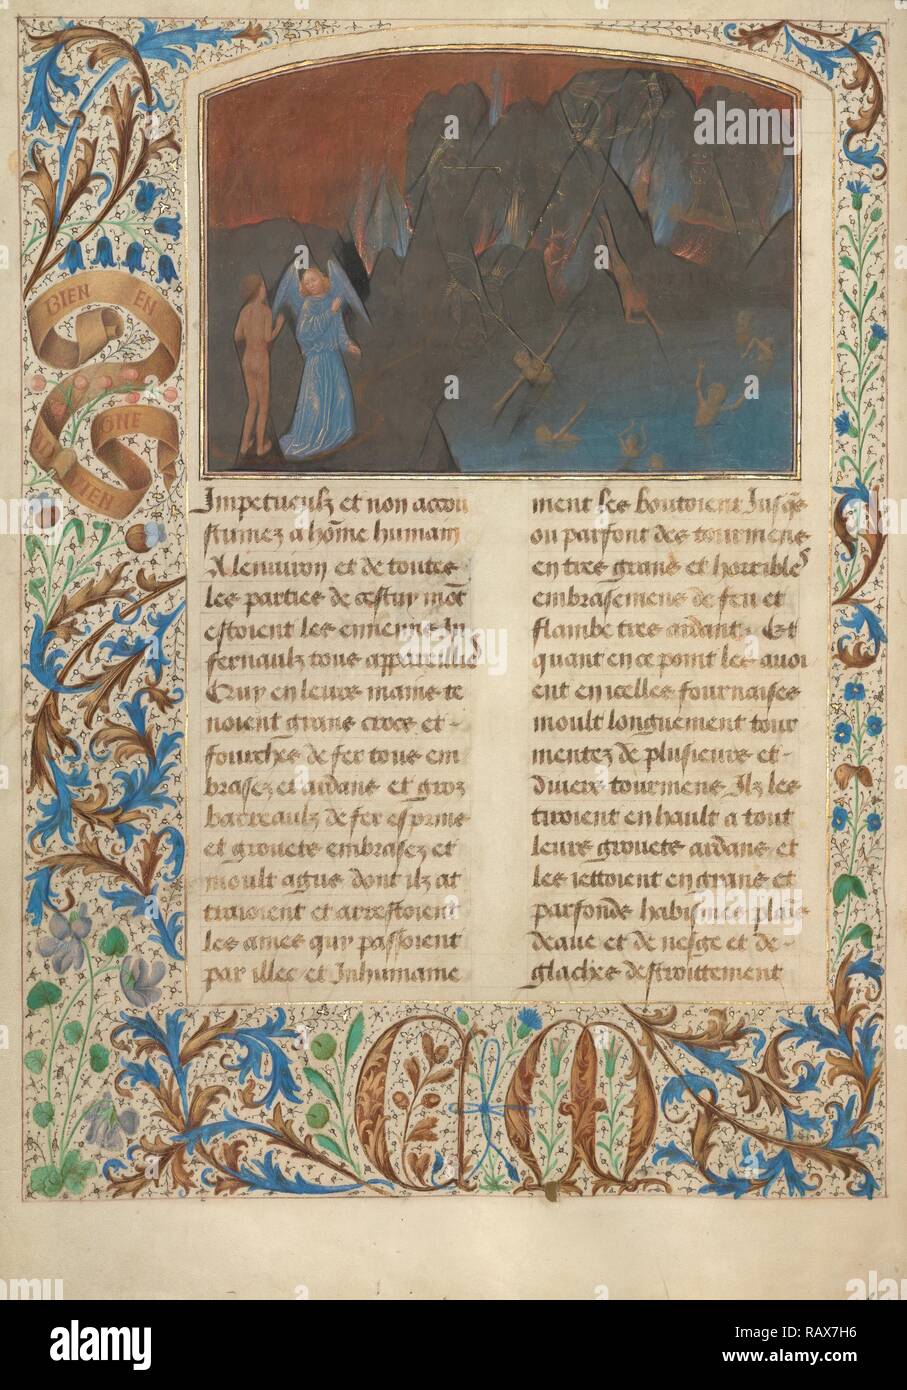 BIEN EN
GNE
VIEN
Impetueulz et non accou
stumez a hōme humain
A lenuiron et de toutes
les parties de cestui mōt
estoient les ennemis In
fernaulz tous appareilliés
Quy en leurs mains te
noient grans crocs et
fourches de fer tous em
brasez et ardans et groz
barreaulz de fer esprins
et grouets embrasez et
moult agus dont ilz at
traioient et arrestoient
les ames quy passoient
par illec et Inhumaine
ment les boutoient Jusqs
ou parfont des tourmens
en tres grans et horribles
embrasemens de feu et
flambe tres ardant. Et
quant en ce point les auoi
ent en icelles fournaises
moult longuement tour
mentez de plusieurs et
diuers tourmens Ilz les
tiroient en hault a tout
leurs grouets ardans et
les iettoient en grans et
parfonds habismes plains
deaue et de nesge et de
glaches destroittement
C M
alamy stock photo
RAX7H6
www.alamy.com